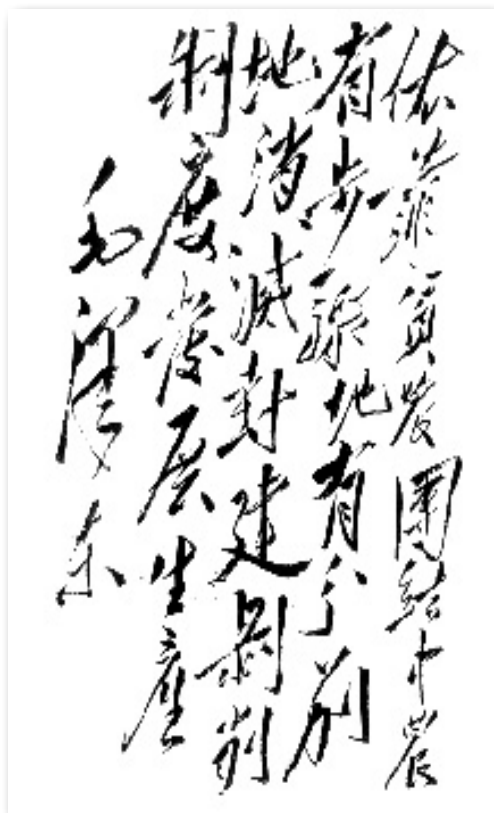 依靠貧农團結中農
有步驟地有分別
地消滅封建剝削
制度發展生產
毛澤東